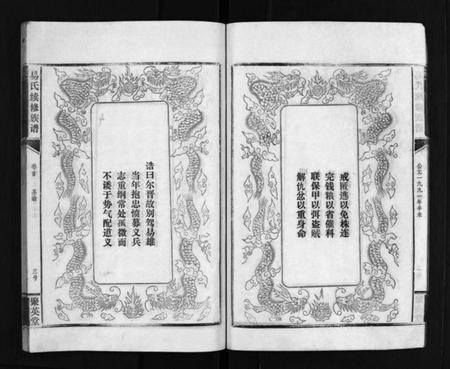 公元一九九一年辛未
戒匿逃以免株连
完钱粮以省催科
联保甲以弭盗贼
解仇忿以重身命
诰曰尔晋故别驾易雄
当年抱忠愤募义兵
志重纲常处孤微而
不诿于势气配道义
易氏续修族谱
卷首
三号
聚英堂